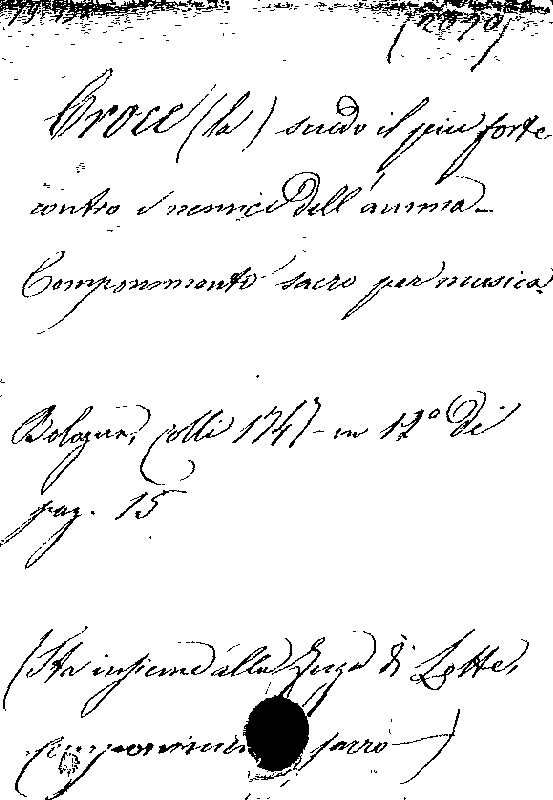 (2090)
Croce (la) scudo il più forte
contro i nemici dell'anima.
Componimento sacro per musica.
Bologna, Colli 1747 - in 12º di
pag. 15
(Sta insieme alla Fuga di Lotte,
componimento sacro)